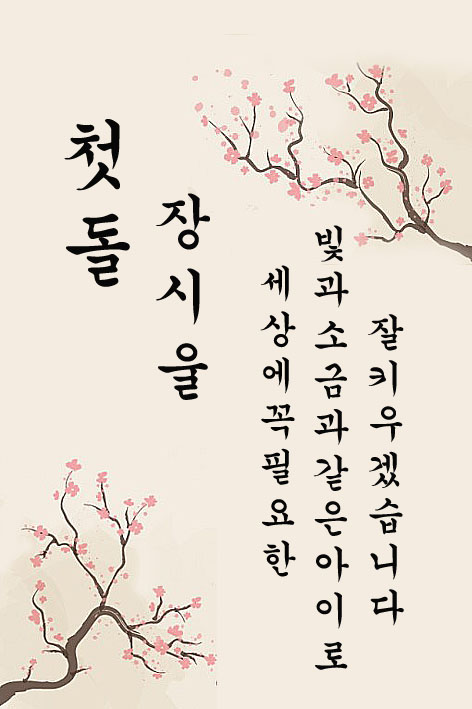 첫돌
장시울
세상에꼭필요한
빛과소금과같은아이로
잘키우겠습니다